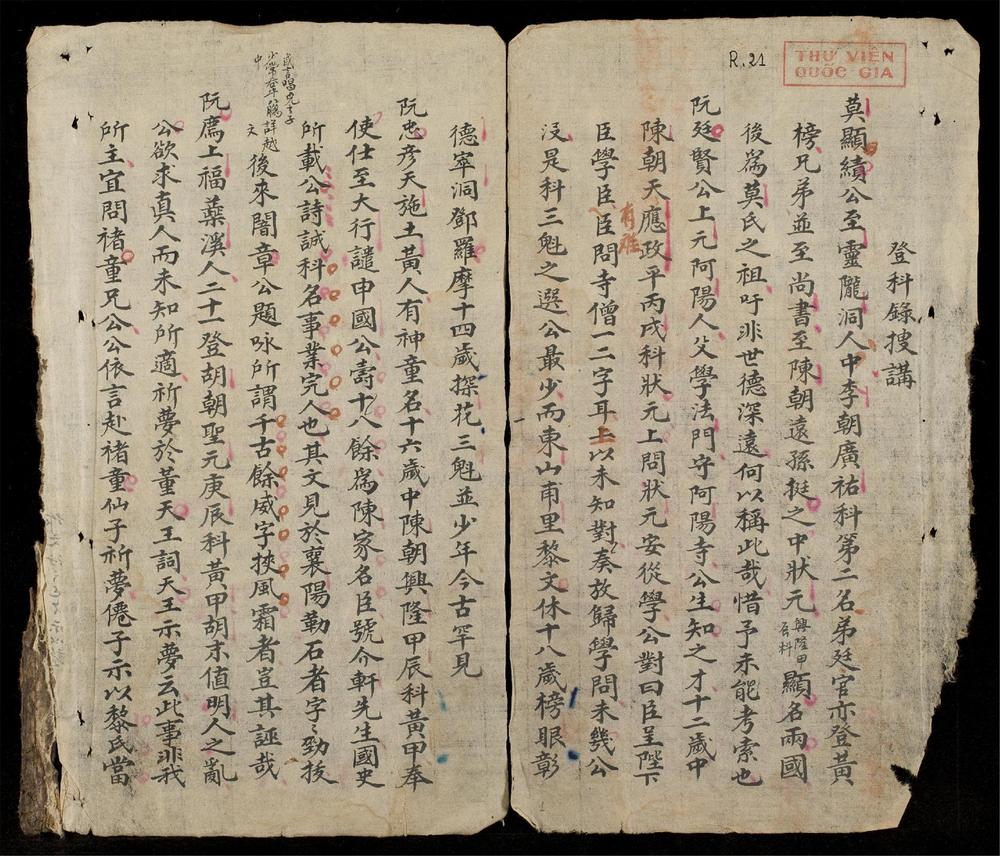 R.21
THƯ VIỆN
QUỐC GIA
登科錄搜講
莫顯績公至靈隴洞人中李朝廣祐科第二名弟廷官亦登黃
榜兄弟並至尚書至陳朝遠孫挺之中狀元興隆甲辰科顯名兩國
後爲莫氏之祖吁非世德深遠何以稱此哉惜予未能考索也
阮廷賢公上元阿陽人父學法門守阿陽寺公生知之才十二歲中
陳朝天應政平丙戌科狀元上問狀元安從學公對曰臣呈陛下
臣學臣臣問寺僧一二字耳上以未知對奏放歸學問未幾公
没是科三魁之選公最少而東山甫里黎文休十八歲榜眼彰
德寕洞鄧羅摩十四歲探花三魁並少年今古罕見
阮忠彥天施土黃人有神童名十六歲中陳朝興隆甲辰科黃甲奉
使仕至大行譴申國公壽十八餘爲陳家名臣號介軒先生國史
所載公詩誠科名事業完人也其文見於襄陽勒石者字〻勁拔
後來闇章公題咏所謂千古餘威字挾風霜者豈其誣哉
阮廌上福蘂溪人二十一登胡朝聖元庚辰科黃甲胡末值明人之亂
公欲求真人而未知所適祈夢於董天王詞天王示夢云此事非我
所主宜問褚童兄公公依言赴褚童仙子祈夢僊子示以黎氏當